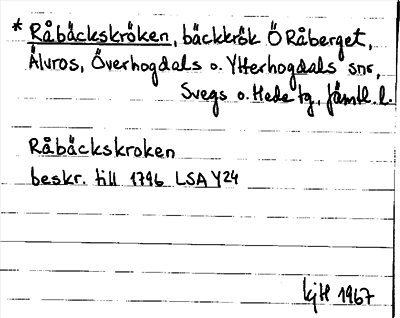 * Råbäckskröken, bäckkrök Ö Råberget,
Älvros, Överhogdals o. Ytterhogdals snr,
Svegs o. Hede tg, Jämtl. l.
Råbäckskroken
beskr. till 1796 LSA Y24
kjH 1967